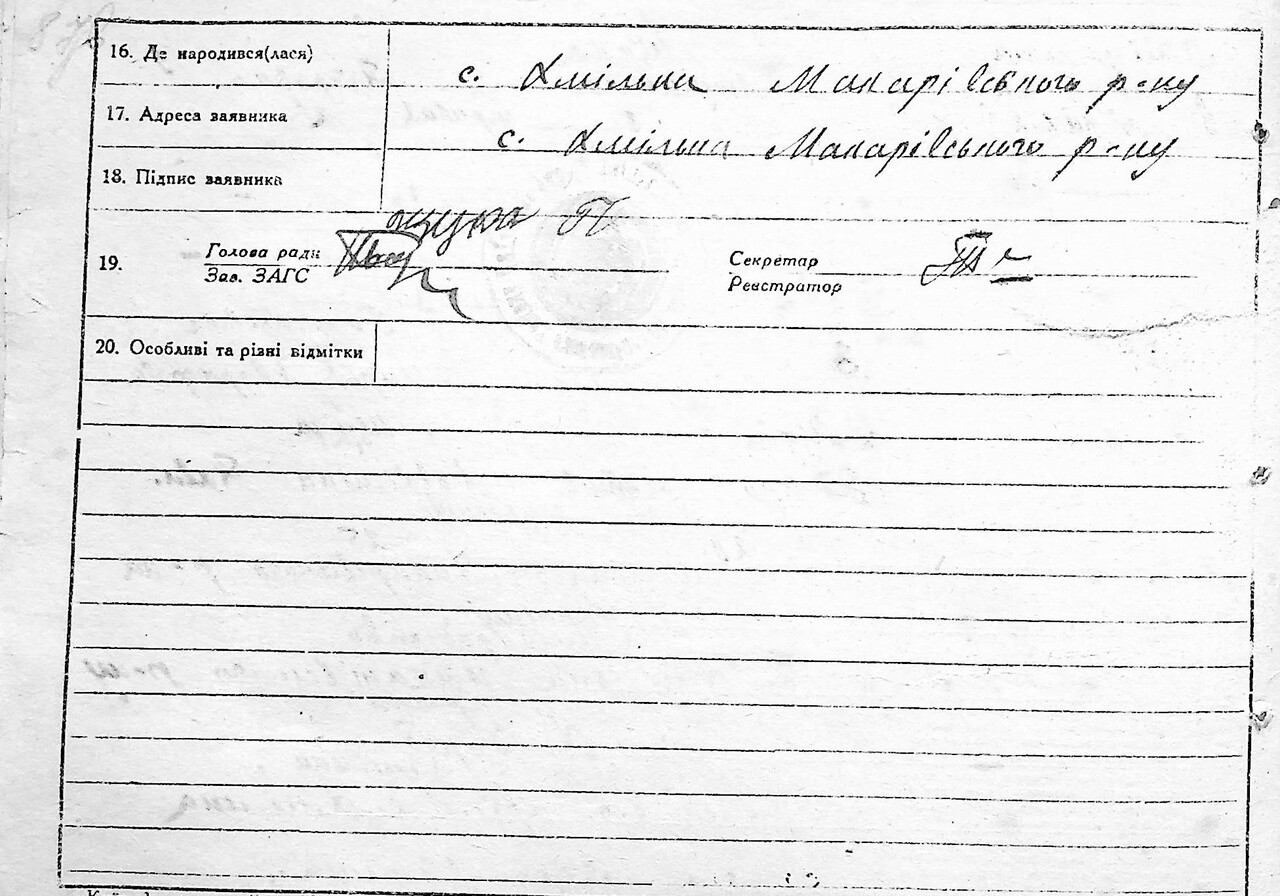 16. Де народився(лася)
с. Хмільна Макарівського р-ну
17. Адреса заявника
с. Хмільна Макарівського р-ну
18. Підпис заявника
19. Голова ради
Зав. ЗАГС
Секретар
Реєстратор
20. Особливі та різні відмітки